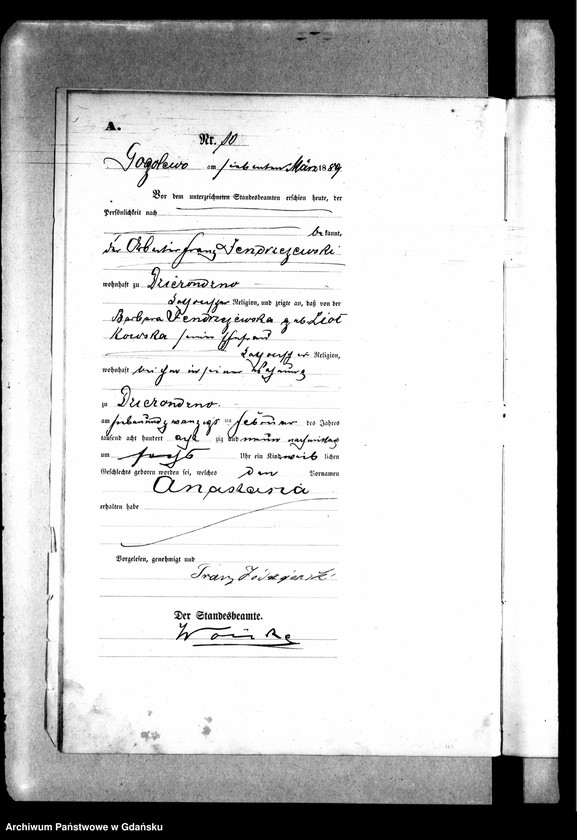 A.
Nr. 10
Gogolewo am siebenten März 1889
Vor dem unterzeichneten Standesbeamten erschien heute, der
Persönlichkeit nach
be kannt,
der Arbeiter Franz Jendrzejewski
wohnhaft zu Dzierondzno
katholischer Religion, und zeigte an, daß von der
Barbara Jendrzejewska geb Ziol
kowska seiner Ehefrau
katholischer Religion,
wohnhaft bei ihm in seiner Wohnung
zu Dzierondzno
am siebenundzwanzigsten Februar des Jahres
tausend acht hundert acht zig und neun nachmittags
um sechs Uhr ein Kind weib lichen
Geschlechts geboren worden sei, welches den Vornamen
Anastasia
erhalten habe
Vorgelesen, genehmigt und
Franz
Der Standesbeamte.